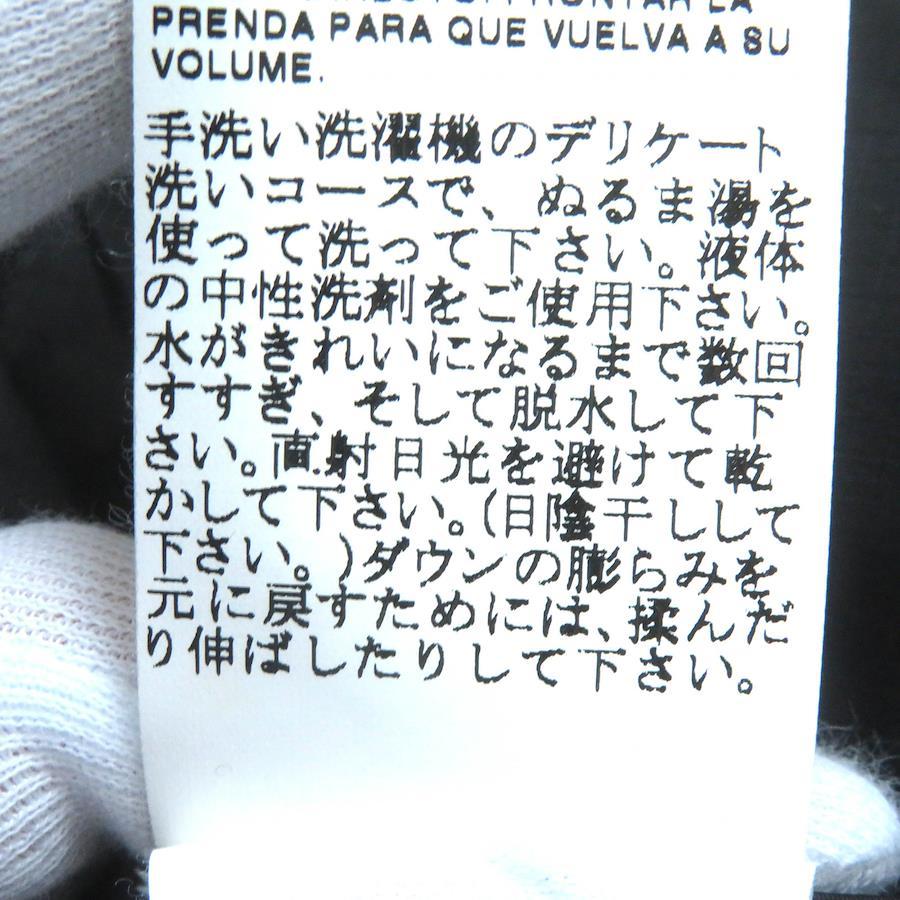 LA
PRENDA PARA QUE VUELVA A SU
VOLUME.
手洗い洗濯機のデリケート
洗いコースで、ぬるま湯を
使って洗って下さい。液体
の中性洗剤をご使用下さい。
水がきれいになるまで数回
すすぎ、そして脱水して下
さい。直射日光を避けて乾
かして下さい。(日陰干しして
下さい。)ダウンの膨らみを
元に戻すためには、揉んだ
り伸ばしたりして下さい。